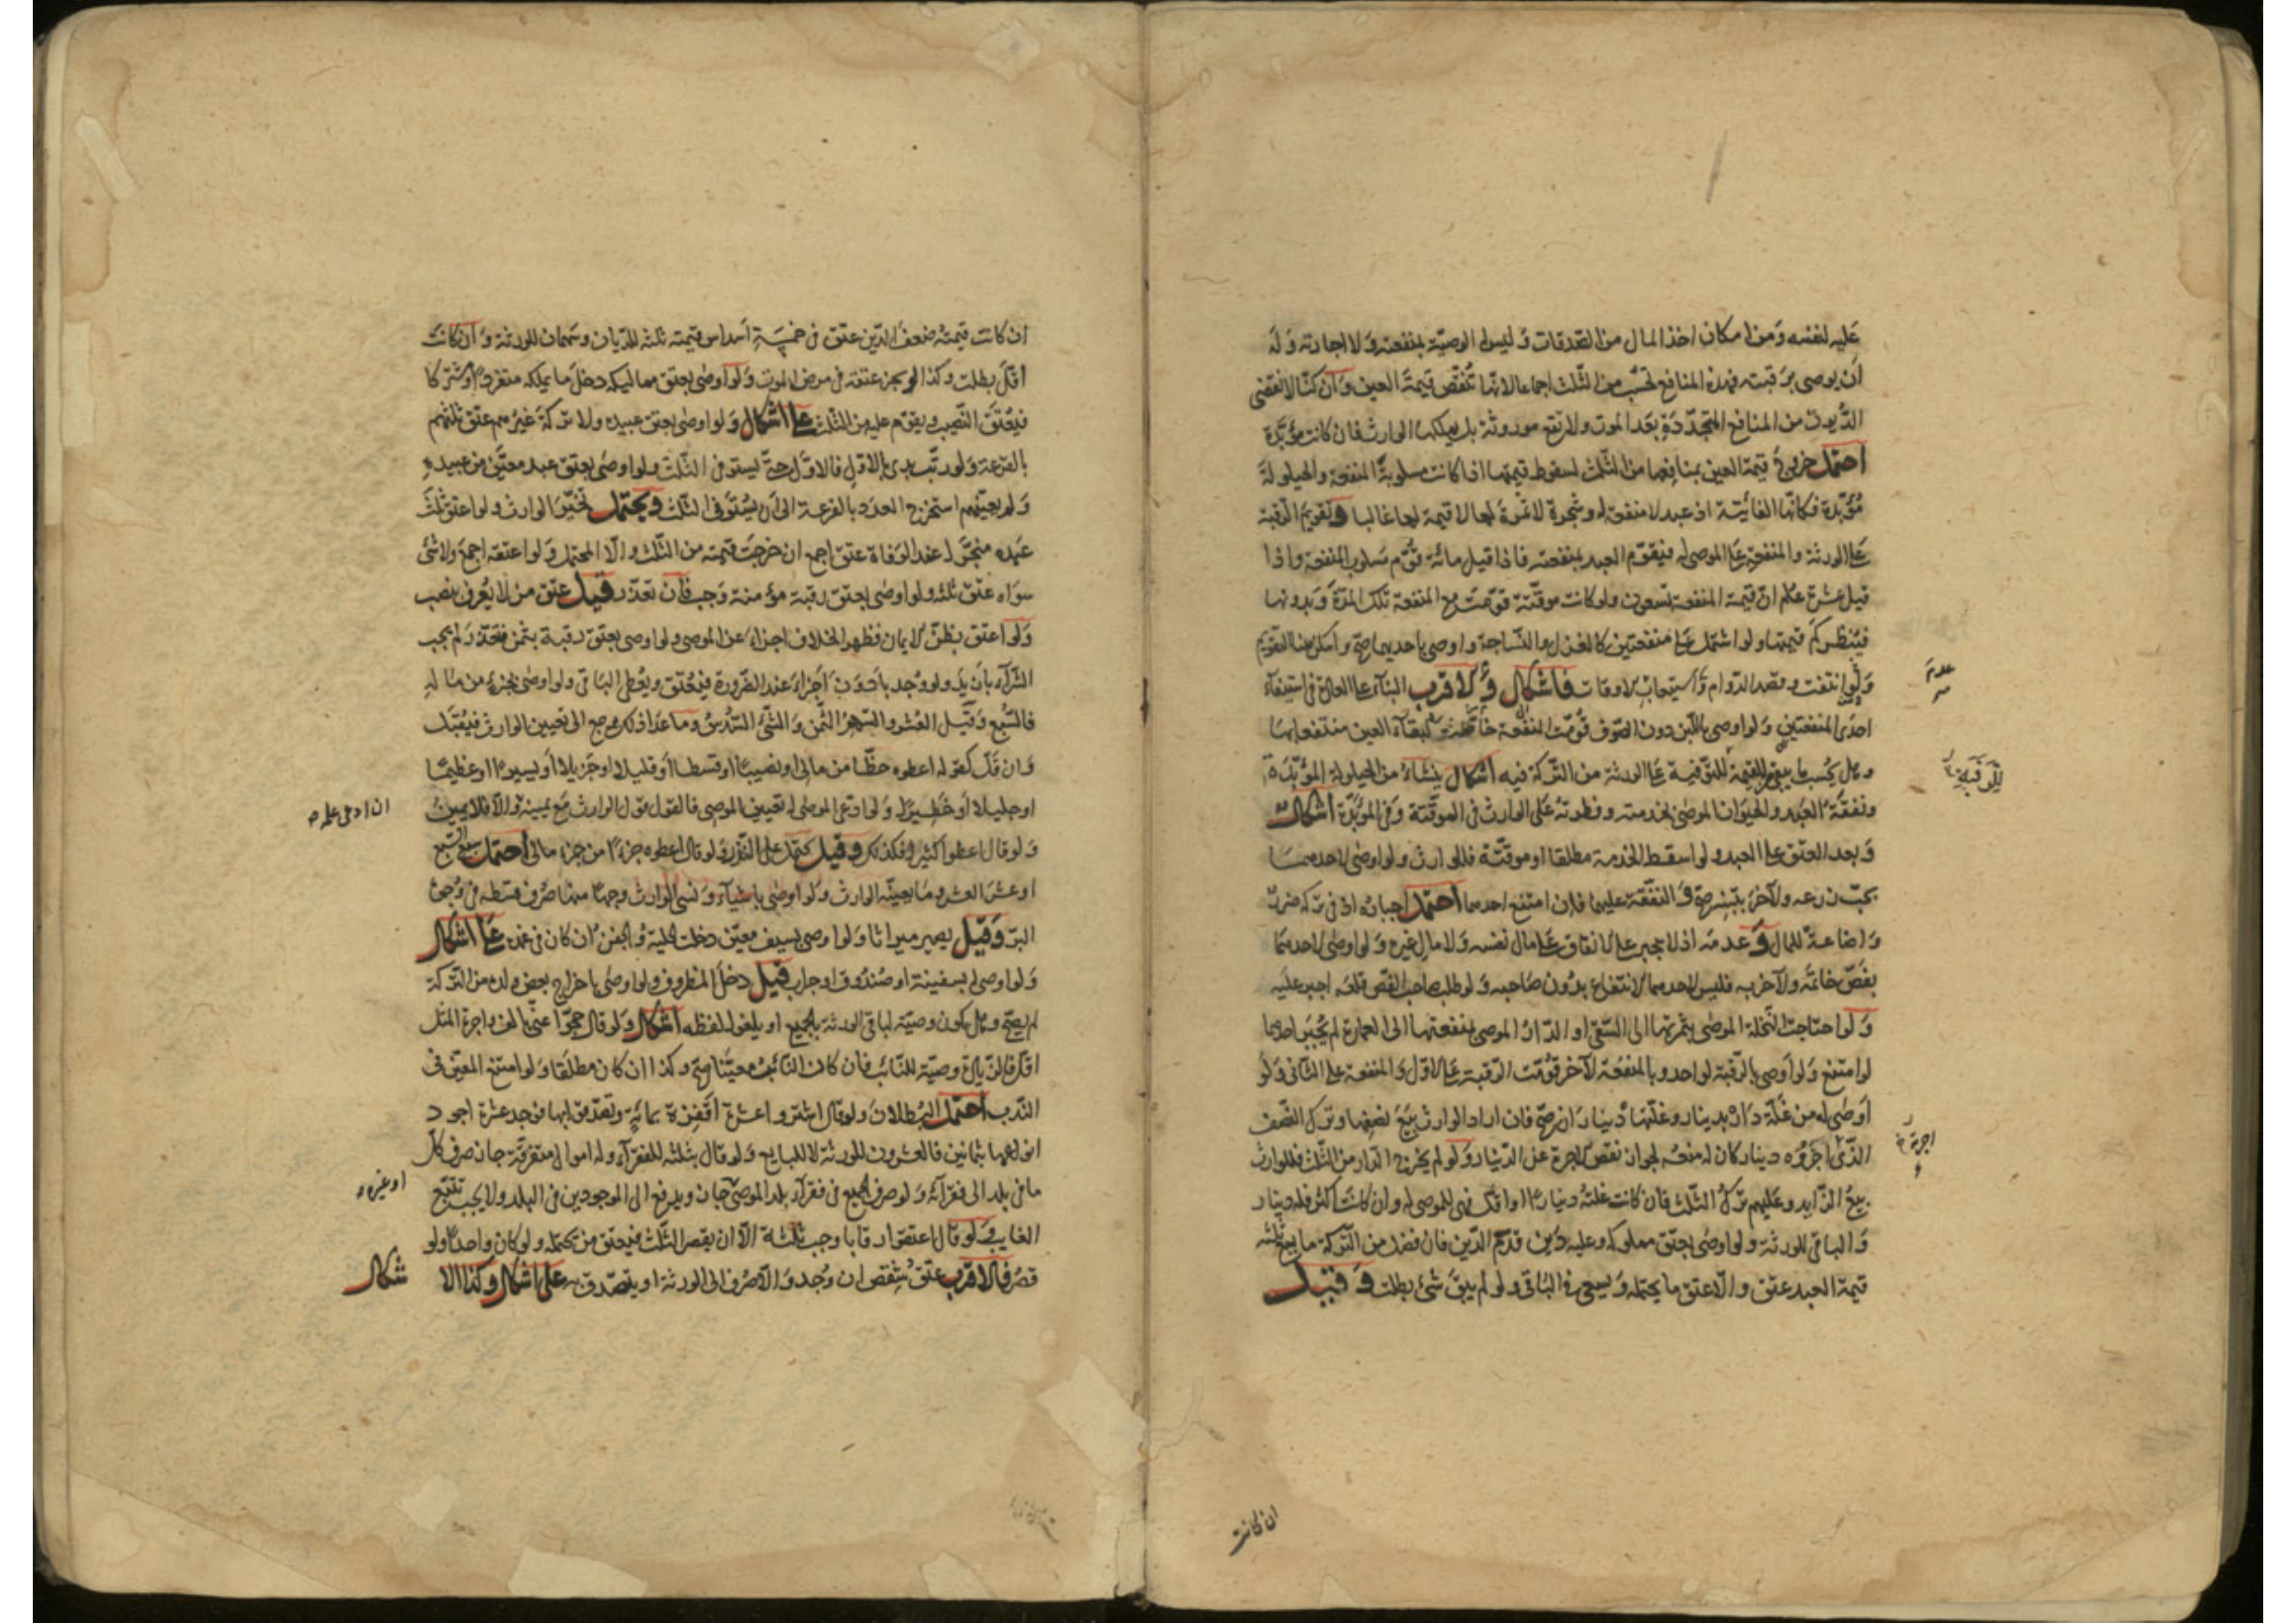 عليه لنفسه ومن امكان اخذ المال من الصدقات وليس له الوصية بمنفعته ولا اجارته وله
ان يوصى برقبته فهذه المنافع تحسب من الثلث اجماعا لانها تنقص قيمة العين وان كنا لا نقضى
الديون من المنافع المتجددة بعد الموت ولا تقع موروثة بل يملكها الوارث فان كانت مؤبدة
احتمل خروج قيمة العين بمنافعها من الثلث لسقوط قيمتها اذا كانت مسلوبة المنفعة والحيلولة
مؤبدة فكانها الفائتة اذ عبد لا منفعة له وشجرة لا ثمرة لها لا قيمة لها غالبا وتقويم الرقبة
على الورثة والمنفعة على الموصى له فيقوم العبد بمنفعته فاذا قيل مائة قوم مسلوب المنفعة واذا
قيل عشرة علم ان قيمة المنفعة تسعون ولو كانت موقتة قومت مع المنفعة تلك المدة وبدونها
فينظر كم قيمتها ولو اشتمل على منفعتين كالغزل والنساجة واوصى باحديهما صح وامكن هنا التقويم
ولو انتفت وقصد الدوام واستيعاب الاوقات فاشكال والاقرب البناء على العادة فى استيفاء
عدم
احدى المنفعتين ولو اوصى باللبن دون الصوف قومت المنفعة خاصة لبقاء العين منتفعا بها
وهل يحسب ما يبقى للقيمة للتوفية على الورثة من التركة فيه اشكال ينشاء من الحيلولة المؤبدة
للرقبة
ونفقة العبد والحيوان الموصى بخدمته وفطرته على الوارث فى الموقتة وفى المؤبدة اشكال
وبعد العتق على العبد ولو اسقط الخدمة مطلقا او موقتة فللوارث ولو اوصى لاحدهما
بحب زرعه ولآخر بتبنه صح والنفقة عليهما فان امتنع احدهما احتمل اجباره اذ فى تركه ضرر
واضاعة للمال وعدمه اذ لا يجبر على الانفاق على مال نفسه ولا مال غيره ولو اوصى لاحدهما
بفص خاتمه ولآخر به فليس لاحدهما الانتفاع بدون صاحبه ولو طلب صاحب الفص قلعه اجب عليه
ولو احتاجت النخلة الموصى بثمرتها الى السقى او الدار الموصى بمنفعتها الى العمارة لم يجبر احدهما
لو امتنع ولو اوصى بالرقبة لواحد وبالمنفعة لآخر قومت الرقبة على الاول والمنفعة على الثانى ولو
اوصى له من غلة داره بدينار وغلتها ديناران صح فان اراد الوارث بيع نصفها وترك النصف
الذى اجروه دينار كان له منعه لجواز نقص الاجرة عن الدينار ولو لم يخرج الدار من الثلث فللوارث
اجرته
بيع الزايد وعليهم ترك الثلث فان كانت غلته دينارا او اقل فهى للموصى له وان كانت اكثر فله دينار
والباقى للورثة ولو اوصى بعتق مملوكه وعليه دين قدم الدين فان فضل من التركة ما يسع ثلثه
قيمة العبد عتق والا عتق ما يحتمله ويسعى فى الباقى ولو لم يبق شئ بطلت وقيل
ان كانت
ان كانت قيمته ضعف الدين عتق فى خمسة اسداس قيمته ثلثه للديان وسهمان للورثة وان كانت
اقل بطلت وكذا لو نجز عتقه فى مرض الموت ولو اوصى بعتق مماليكه دخل ما يملكه منفردا ومشتركا
فيعتق النصيب ويقوم عليه من الثلث على اشكال ولو اوصى بعتق عبيده ولا تركة غيرهم عتق ثلثهم
بالقرعة ولو رتب بدئ بالاول فالاول حتى يستوفى الثلث ولو اوصى بعتق عبد معين من عبيده
ولم يعينهم استخرج العدد بالقرعة الى ان يستوفى الثلث ويحتمل تخير الوارث ولو اعتق ثلث
عبده منجزا عند الوفاة عتق اجمع ان خرجت قيمته من الثلث والا المحتمل ولو اعتقه اجمع ولا شئ
سواه عتق ثلثه ولو اوصى بعتق رقبة مؤمنة وجب فان تعذر قيل عتق من لا يعرف بنصب
ولو اعتق بظن الايمان فظهر الخلاف اجزاء عن الموصى ولو اوصى بعتق رقبة بثمن فتعذر لم يجب
الشراء بازيد ولو وجد بادون اجزاء عند الضرورة فيعتق ويعطى الباقى ولو اوصى بجزء من ماله
فالسبع وقيل العشر والسهم الثمن والشئ السدس وما عدا ذلك يرجع الى تعيين الوارث فيقبل
وان قل كقوله اعطوه حظا من مالى او نصيبا او قسطا او قليلا او جزيلا او يسيرا او عظيما
او جليلا او خطيرا ولو ادعى الموصى له تعيين الموصى فالقول قول الوارث مع يمينه والا فلا يمين
ان ادعى علمه
ولو قال اعطوا كثيرا فكذلك وقيل كمحمل على النذر ولو قال اعطوه جزءا من جزء مالى احتمل سبع السبع
او عشر العشر وما يعينه الوارث ولو اوصى باشياء ونسى الوارث وجها منها صرف قسطه فى وجوه
البر وقيل يصير ميراثا ولو اوصى بسيف معين دخلت الحلية والجفن ان كان فى غمده على اشكال
ولو اوصى بسفينة او صندوق او جراب قيل دخل المظروف ولو اوصى باخراج بعض ولده من التركة
لم يصح وهل يكون وصية لباقى الورثة بالجميع او يلغو اللفظه اشكال ولو قال حجوا عنى بالف واجرة المثل
اقل فالزيادة وصية للنائب فان كان النائب معينا صح وكذا ان كان مطلقا ولو امتنع المعين فى
الندب احتمل البطلان ولو قال اشتروا عشرة اقفزة بمائة وتصدقوا بها فوجد عشرة اجود
انواعها بثمانين فالعشرون للورثة لا للبايع ولو قال بثلثه للفقراء وله اموال متفرقة جاز صرف كل
ما فى بلد الى فقرائه ولو صرف الجميع فى فقراء بلد الموصى جاز ويدفع الى الموجودين فى البلد ولا يجب تتبع
او غيره
الغايب ولو قال اعتقوا رقابا وجب ثلثة الا ان يقصر الثلث فيعتق من يحتمله ولو كان واحدا ولو
قصر فالاقرب عتق شقص ان وجد والا صرف الى الورثة او يتصدق به على اشكال وكذا الا شكال